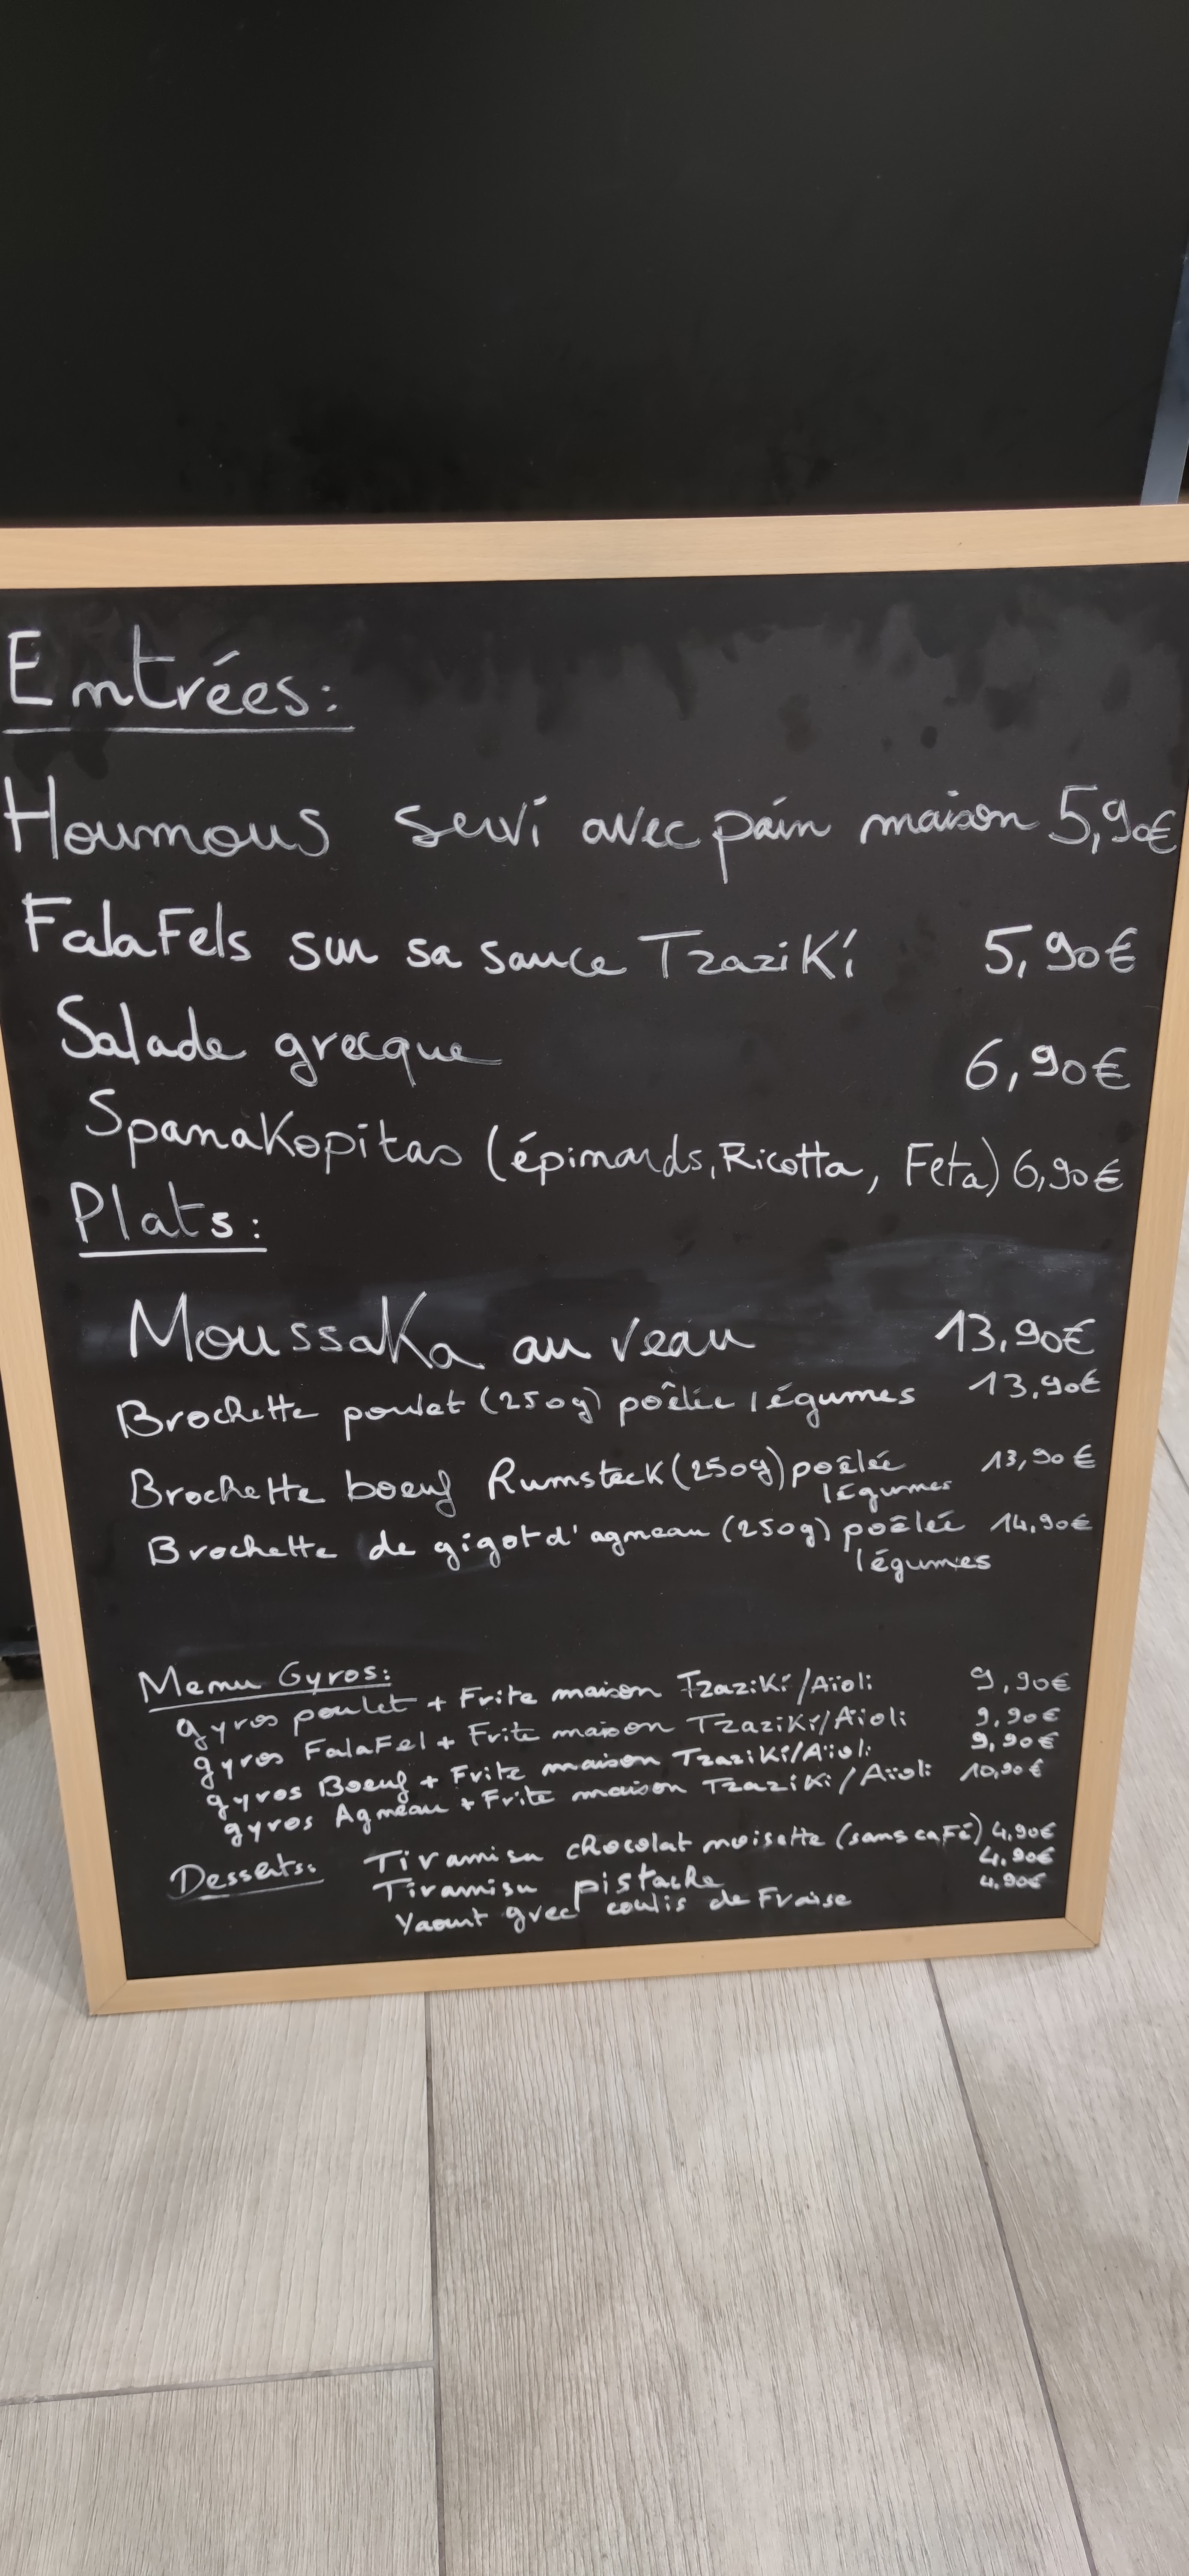 Entrées:
Houmous servi avec pain maison 5,90€
FalaFels sur sa sauce TzaziKi 5,90€
Salade grecque 6,90€
SpanaKopitas (épinards, Ricotta, Feta) 6,90€
Plats:
MoussaKa au veau 13,90€
Brochette poulet (250g) poêlée légumes 13,90€
Brochette boeuf Rumsteck (250g) poêlée 13,90€
légumes
Brochette de gigot d'agneau (250g) poêlée 14,90€
légumes
Menu Gyros:
gyros poulet + Frite maison TzaziKi/Aïoli 9,90€
gyros FalaFel + Frite maison TzaziKi/Aïoli 9,90€
gyros Boeuf + Frite maison TzaziKi/Aïoli 9,90€
gyros Agneau + Frite maison TzaziKi/Aïoli 10,90€
Desserts: Tiramisu chocolat noisette (sans caFé) 4,90€
Tiramisu pistache 4,90€
Yaourt grec coulis de Fraise 4,90€